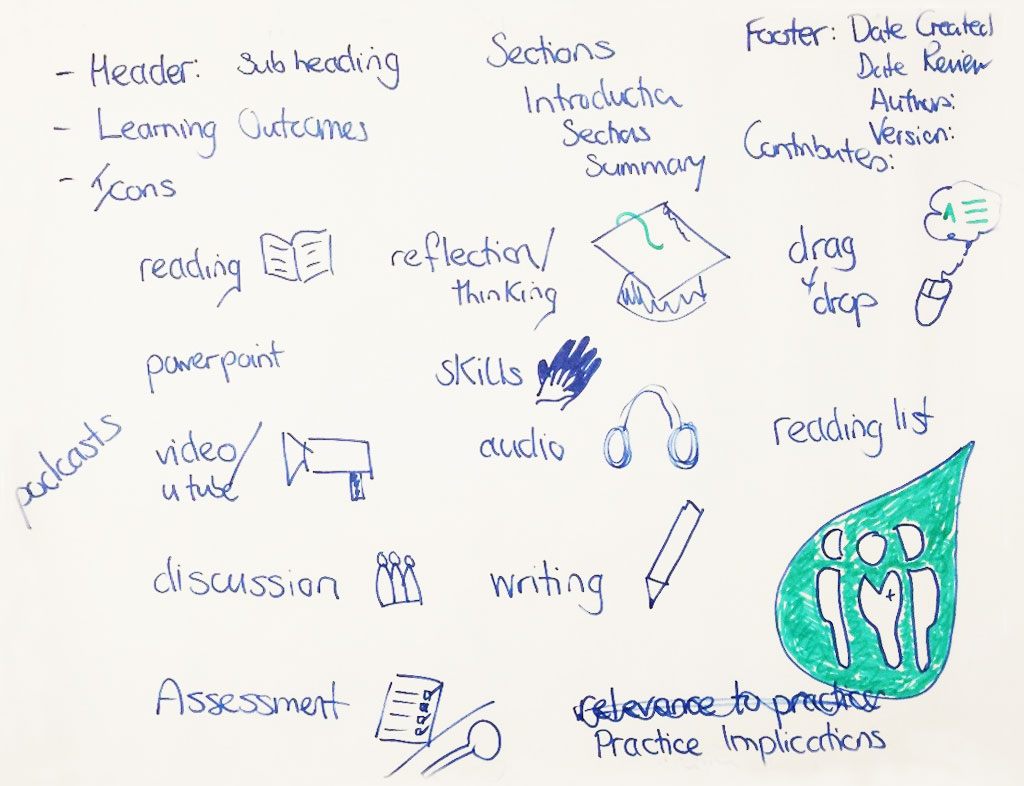 - Header: Subheading
- Learning Outcomes
- Icons
Sections
Introduction
Sections
Summary
Footer: Date Created
Date Review
Authors:
Version:
Contributes:
reading
reflection/
thinking
drag
+ drop
powerpoint
skills
podcasts
video/
u tube
audio
reading list
discussion
writing
Assessment
relevance to practice
Practice Implications